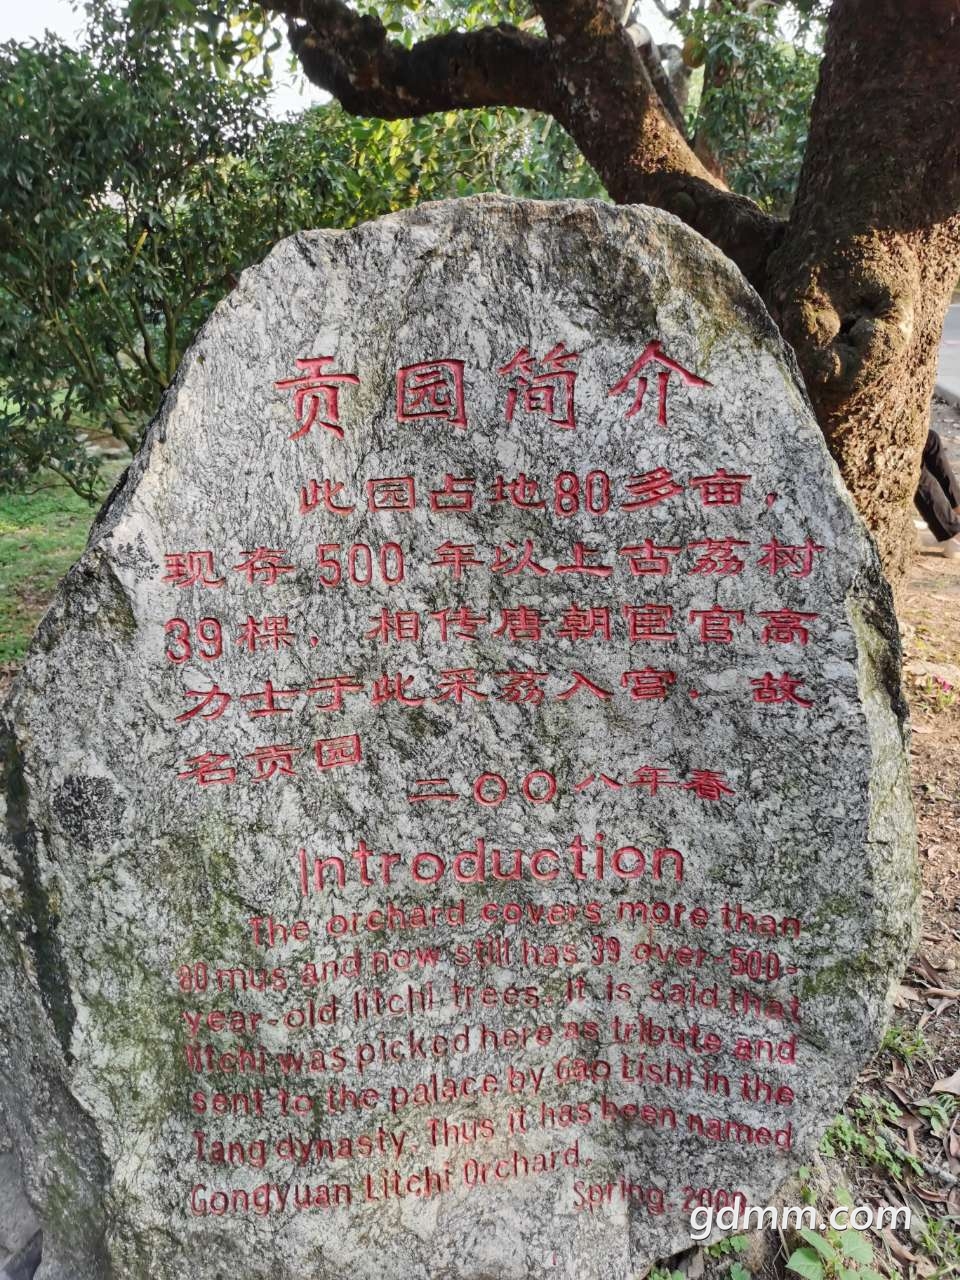 贡园简介
此园占地80多亩，
现存500年以上古荔树
39棵，相传唐朝宦官高
力士于此采荔入宫，故
名贡园
二〇〇八年春
Introduction
The orchard covers more than
80 mus and now still has 39 over-500-
year-old litchi trees. It is said that
litchi was picked here as tribute and
sent to the palace by Gao Lishi in the
Tang dynasty. Thus it has been named
GongYuan Litchi Orchard.
Spring
gdmm.com